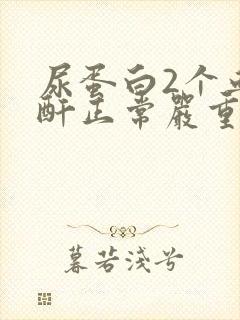 尿蛋白2个
酐正常严重
暮若浅兮